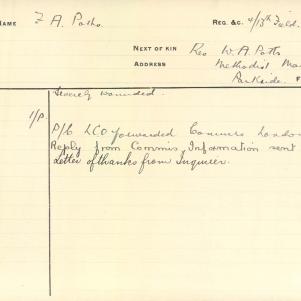 NAME F. A. Potts. REG. &C. 4/13th Field.
NEXT OF KIN Rev W. A. Potts
ADDRESS Methodist Man
Parkside. F
Severely wounded.
1/P. P/C LCO forwarded Commrs London
Reply from Commis. Information sent
Letter of thanks from Inquirer.